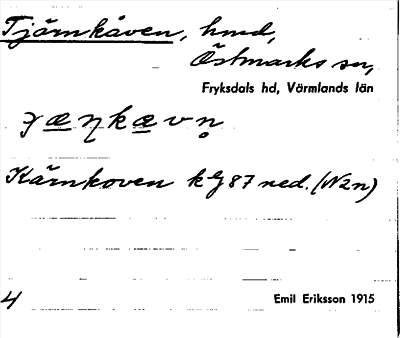 Tjärnkåven, hmd,
Östmarks sn,
Fryksdals hd, Värmlands län
Kärnkoven k bl 87 ned. (N2n)
4
Emil Eriksson 1915